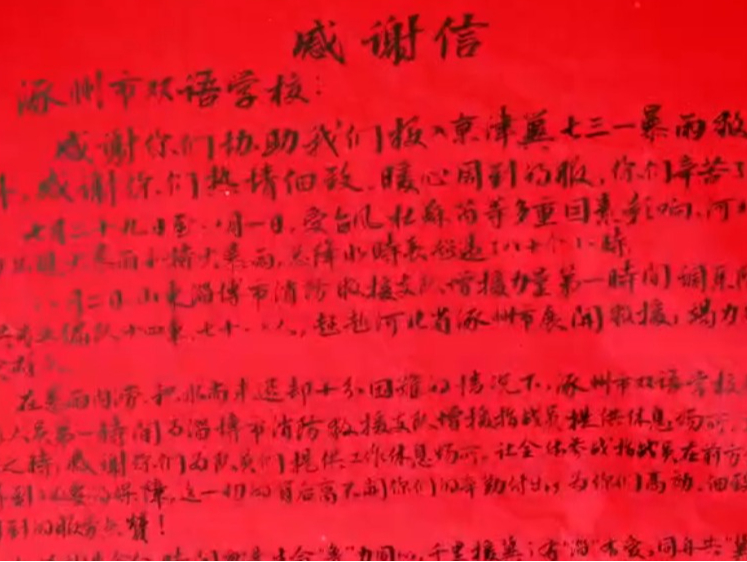 感谢信
涿州市双语学校:
感谢你们协助我们投入京津冀七三一暴雨救
感谢你们热情细致、暖心周到的服,你们辛苦了
七月二十九日至八月一日,受台风杜苏芮等多重因素影响,河
大暴雨和特大暴雨,总降水时长超过了八十个小时
八月二日,山东淄博市消防救援支队增援力量第一時间调集
十四车,七十八人,赶赴河北省涿州市展开救援,竭力
在暴雨内涝、积水尚未退却十分困难的情况下,涿州市双语学校
人员第一時间为淄博市消防救援支队增援指战员提供休息场所
之時,感谢你们为队员们提供工作休息场所,让全体参战指战员在前方
得到必要的保障,这一切的背后离不开你们的辛勤付出,为你们高效、细致
周到的服务点赞!
力同心,千里援冀;有"淄"有爱,同舟共"冀